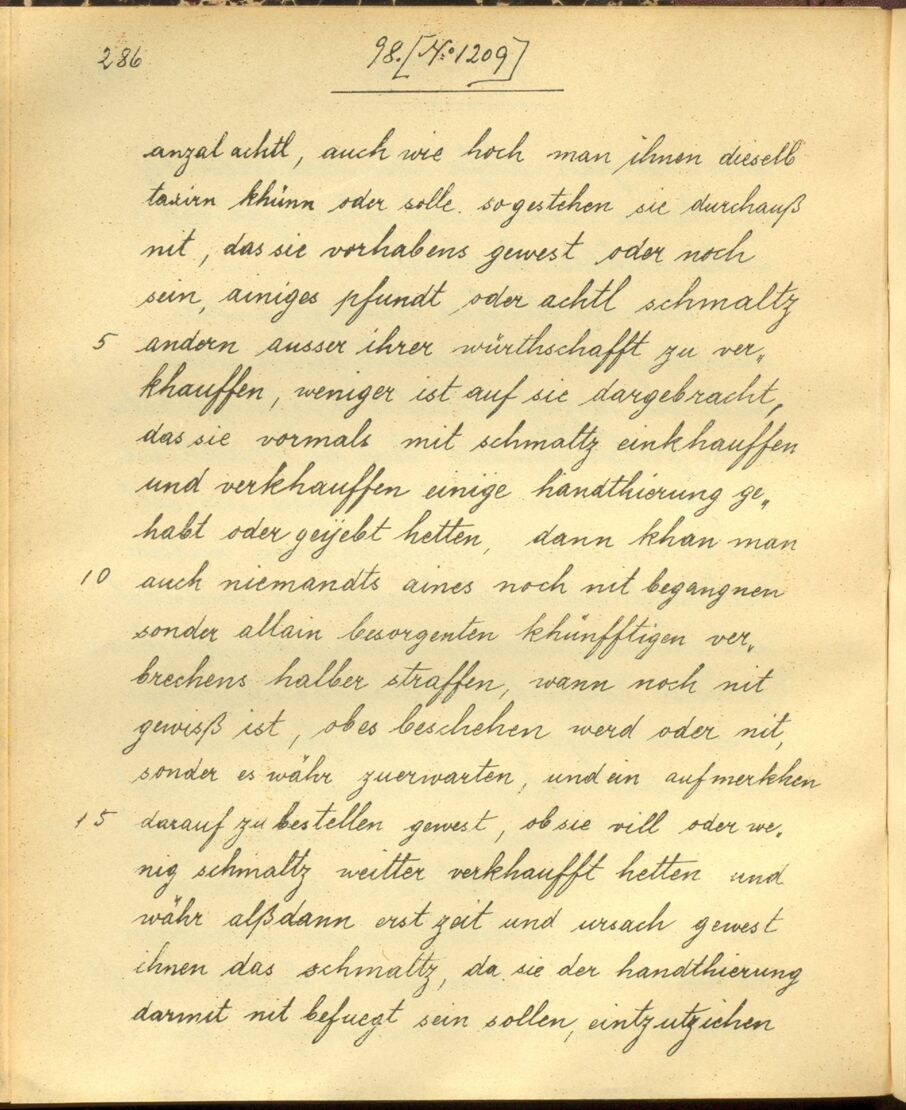 286
98. [No 1209]
anzal achtl, auch wie hoch man ihnen dieselb
taxirn khünn oder solle. so gestehen sie durchauß
nit, das sie vorhabens gewest oder noch
sein, ainiges pfundt oder achtl schmaltz
5 andern ausser ihrer würthschafft zu ver„
khauffen, weniger ist auf sie dargebracht,
das sie vormals mit schmaltz einkhauffen
und verkhauffen einige handthierung ge„
habt oder geÿebt hetten, dann khan man
10 auch niemandts aines noch nit begangnen
sonder allain besorgenten khünfftigen ver„
brechens halber straffen, wann noch nit
gewisß ist, ob es beschehen werd oder nit,
sonder es währ zuerwarten, und ein aufmerkhen
15 darauf zu bestellen gewest, ob sie vill oder we„
nig schmaltz weitter verkhaufft hetten und
währ alßdann erst zeit und ursach gewest
ihnen das schmaltz, da sie der handthierung
darmit nit befuegt sein sollen, eintzutziehen